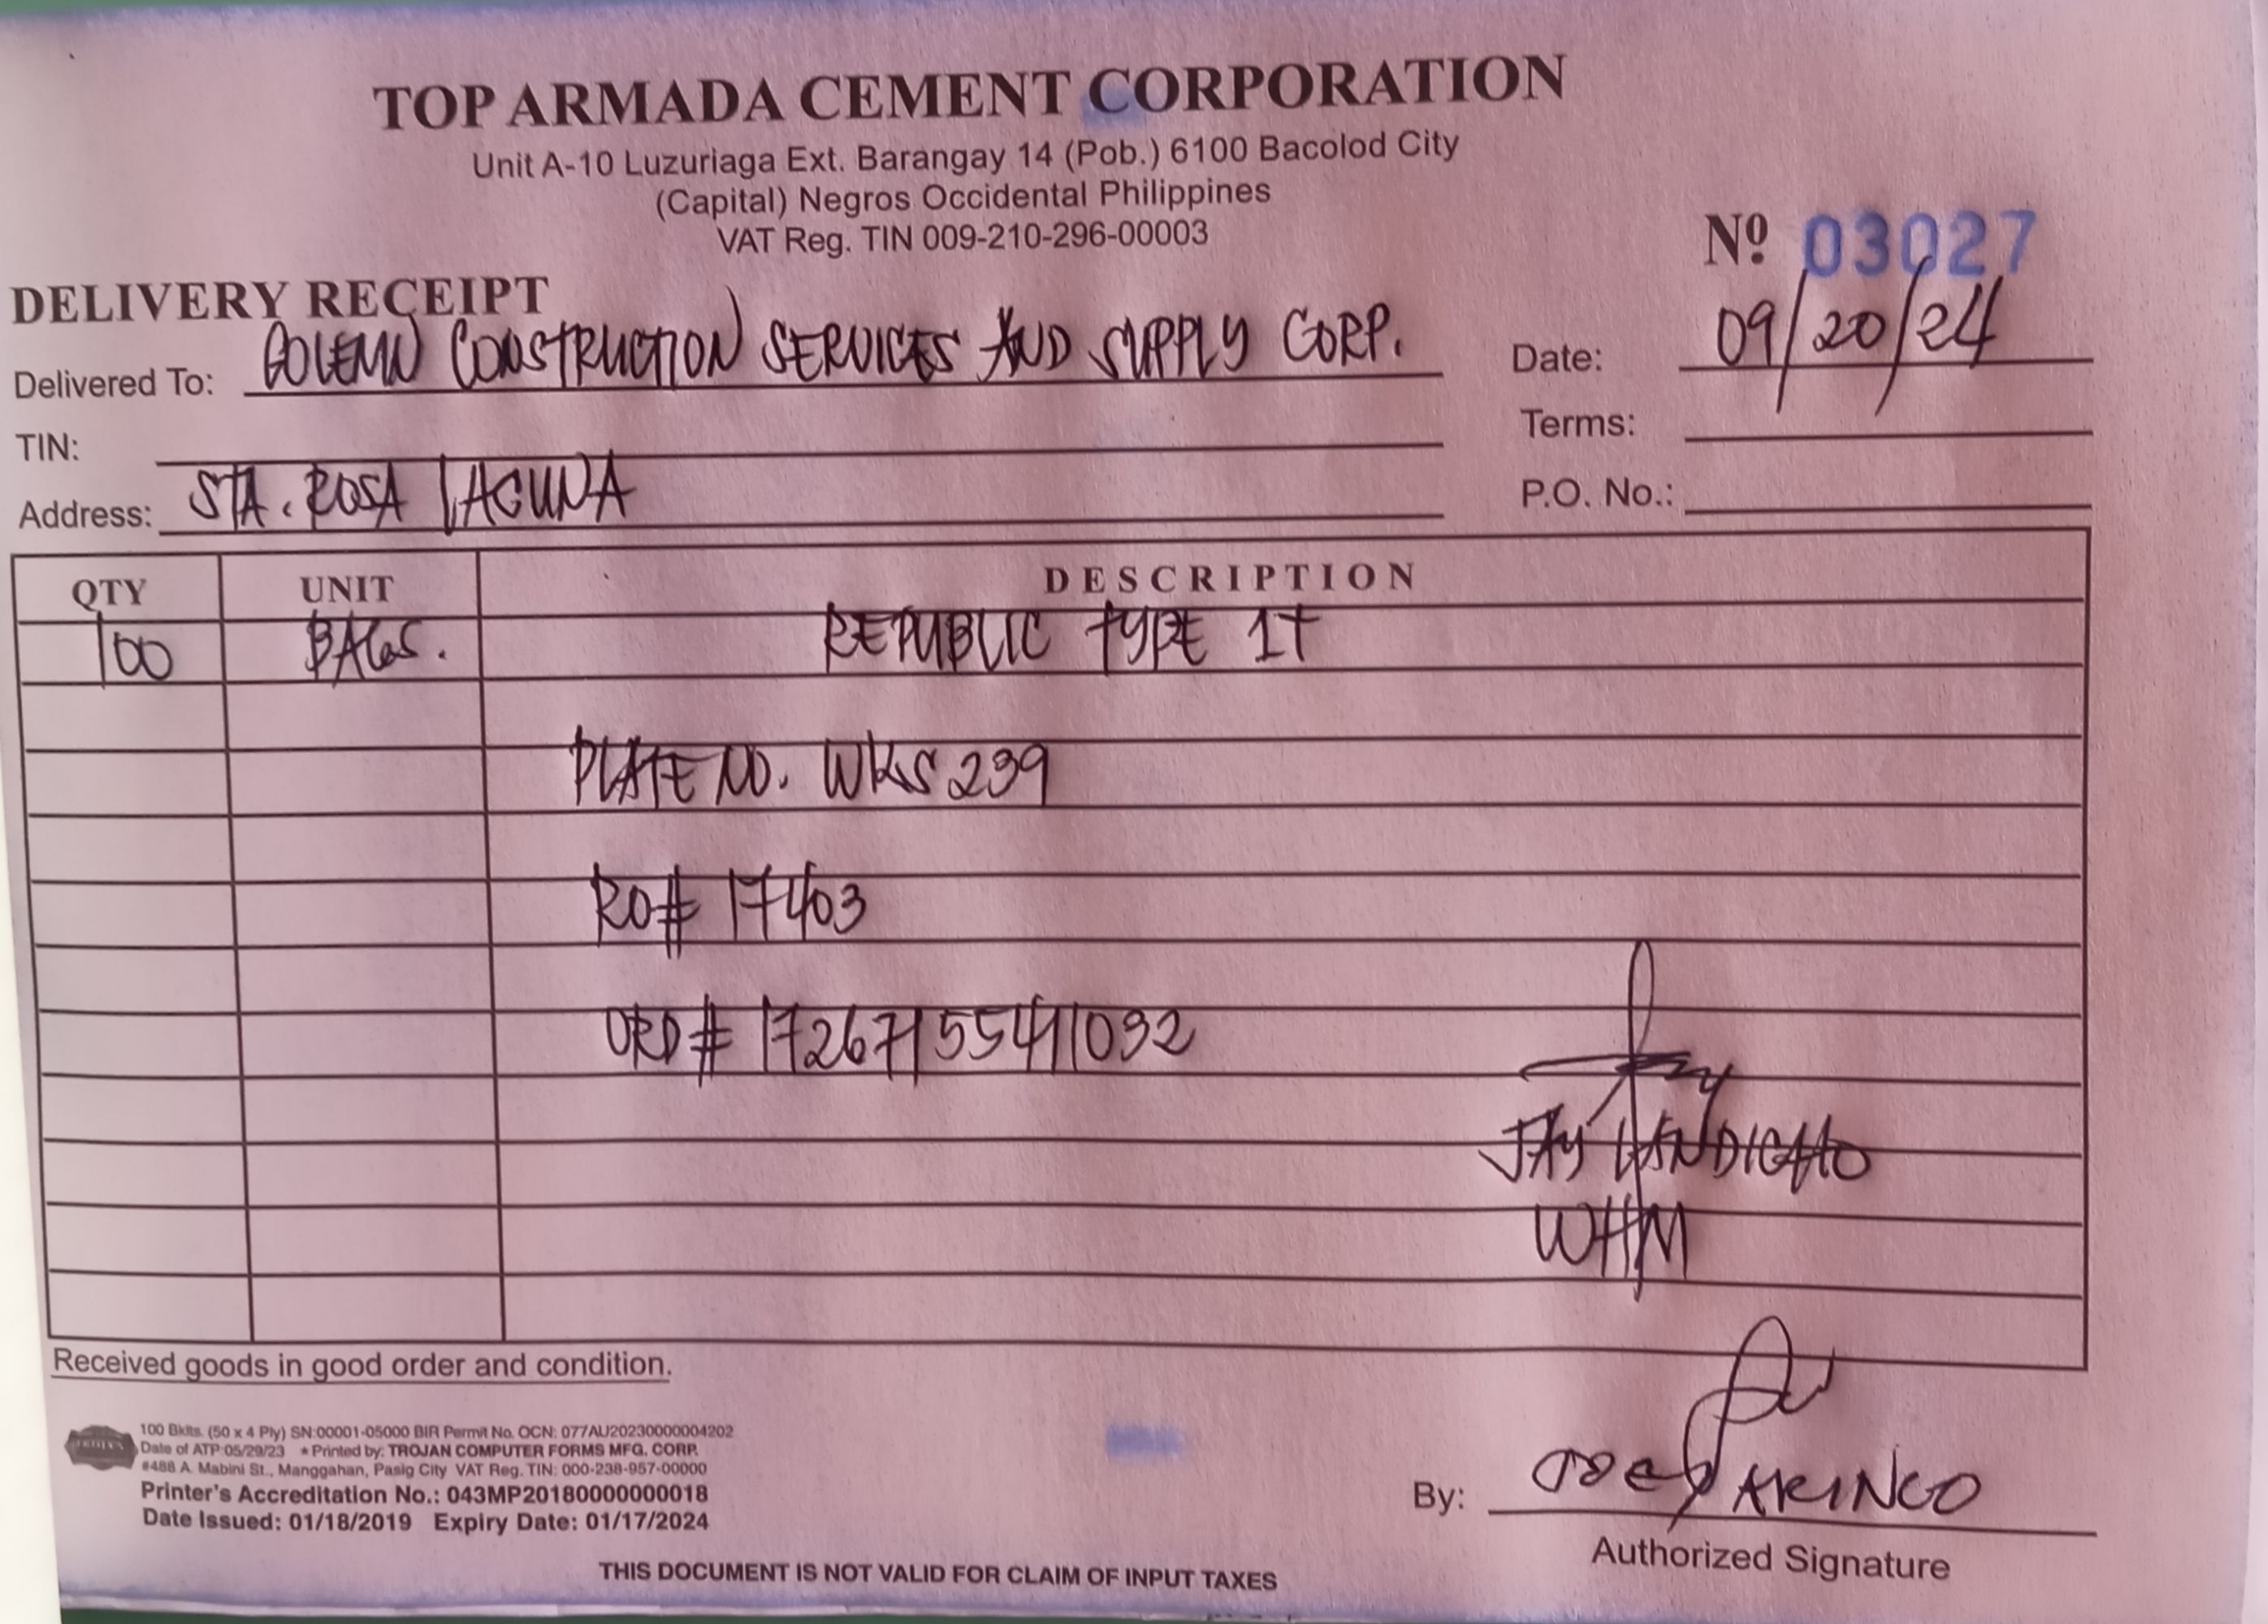 TOP ARMADA CEMENT CORPORATION
Unit A-10 Luzuriaga Ext. Barangay 14 (Pob.) 6100 Bacolod City
(Capital) Negros Occidental Philippines
VAT Reg. TIN 009-210-296-00003
Nº 03027
DELIVERY RECEIPT
Delivered To: GOLEMN CONSTRUCTION SERVICES AND SUPPLY CORP. Date: 09/20/24
TIN: Terms:
Address: STA. ROSA LAGUNA P.O. No.:
QTY UNIT DESCRIPTION
100 BAGS. REPUBLIC TYPE 1T
PLATE NO. WKS 239
RO# 17403
ORD# 1726715541032
JAY LANDICHO
WHM
Received goods in good order and condition.
100 Bklts. (50 x 4 Ply) SN:00001-05000 BIR Permit No. OCN: 077AU20230000004202
Date of ATP:05/29/23 * Printed by: TROJAN COMPUTER FORMS MFG. CORP.
#488 A. Mabini St., Manggahan, Pasig City VAT Reg. TIN: 000-238-957-00000
Printer's Accreditation No.: 043MP20180000000018
Date Issued: 01/18/2019 Expiry Date: 01/17/2024
By: ARINCO
Authorized Signature
THIS DOCUMENT IS NOT VALID FOR CLAIM OF INPUT TAXES